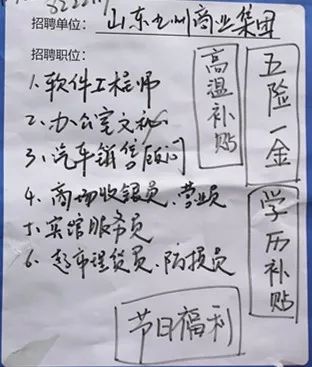 招聘单位：山东九州商业集团
招聘职位：
1、软件工程师
2、办公室文秘
3、汽车销售顾问
4、商场收银员、营业员
5、宾馆服务员
6、超市理货员、防损员
高温补贴
五险一金
学历补贴
节日福利